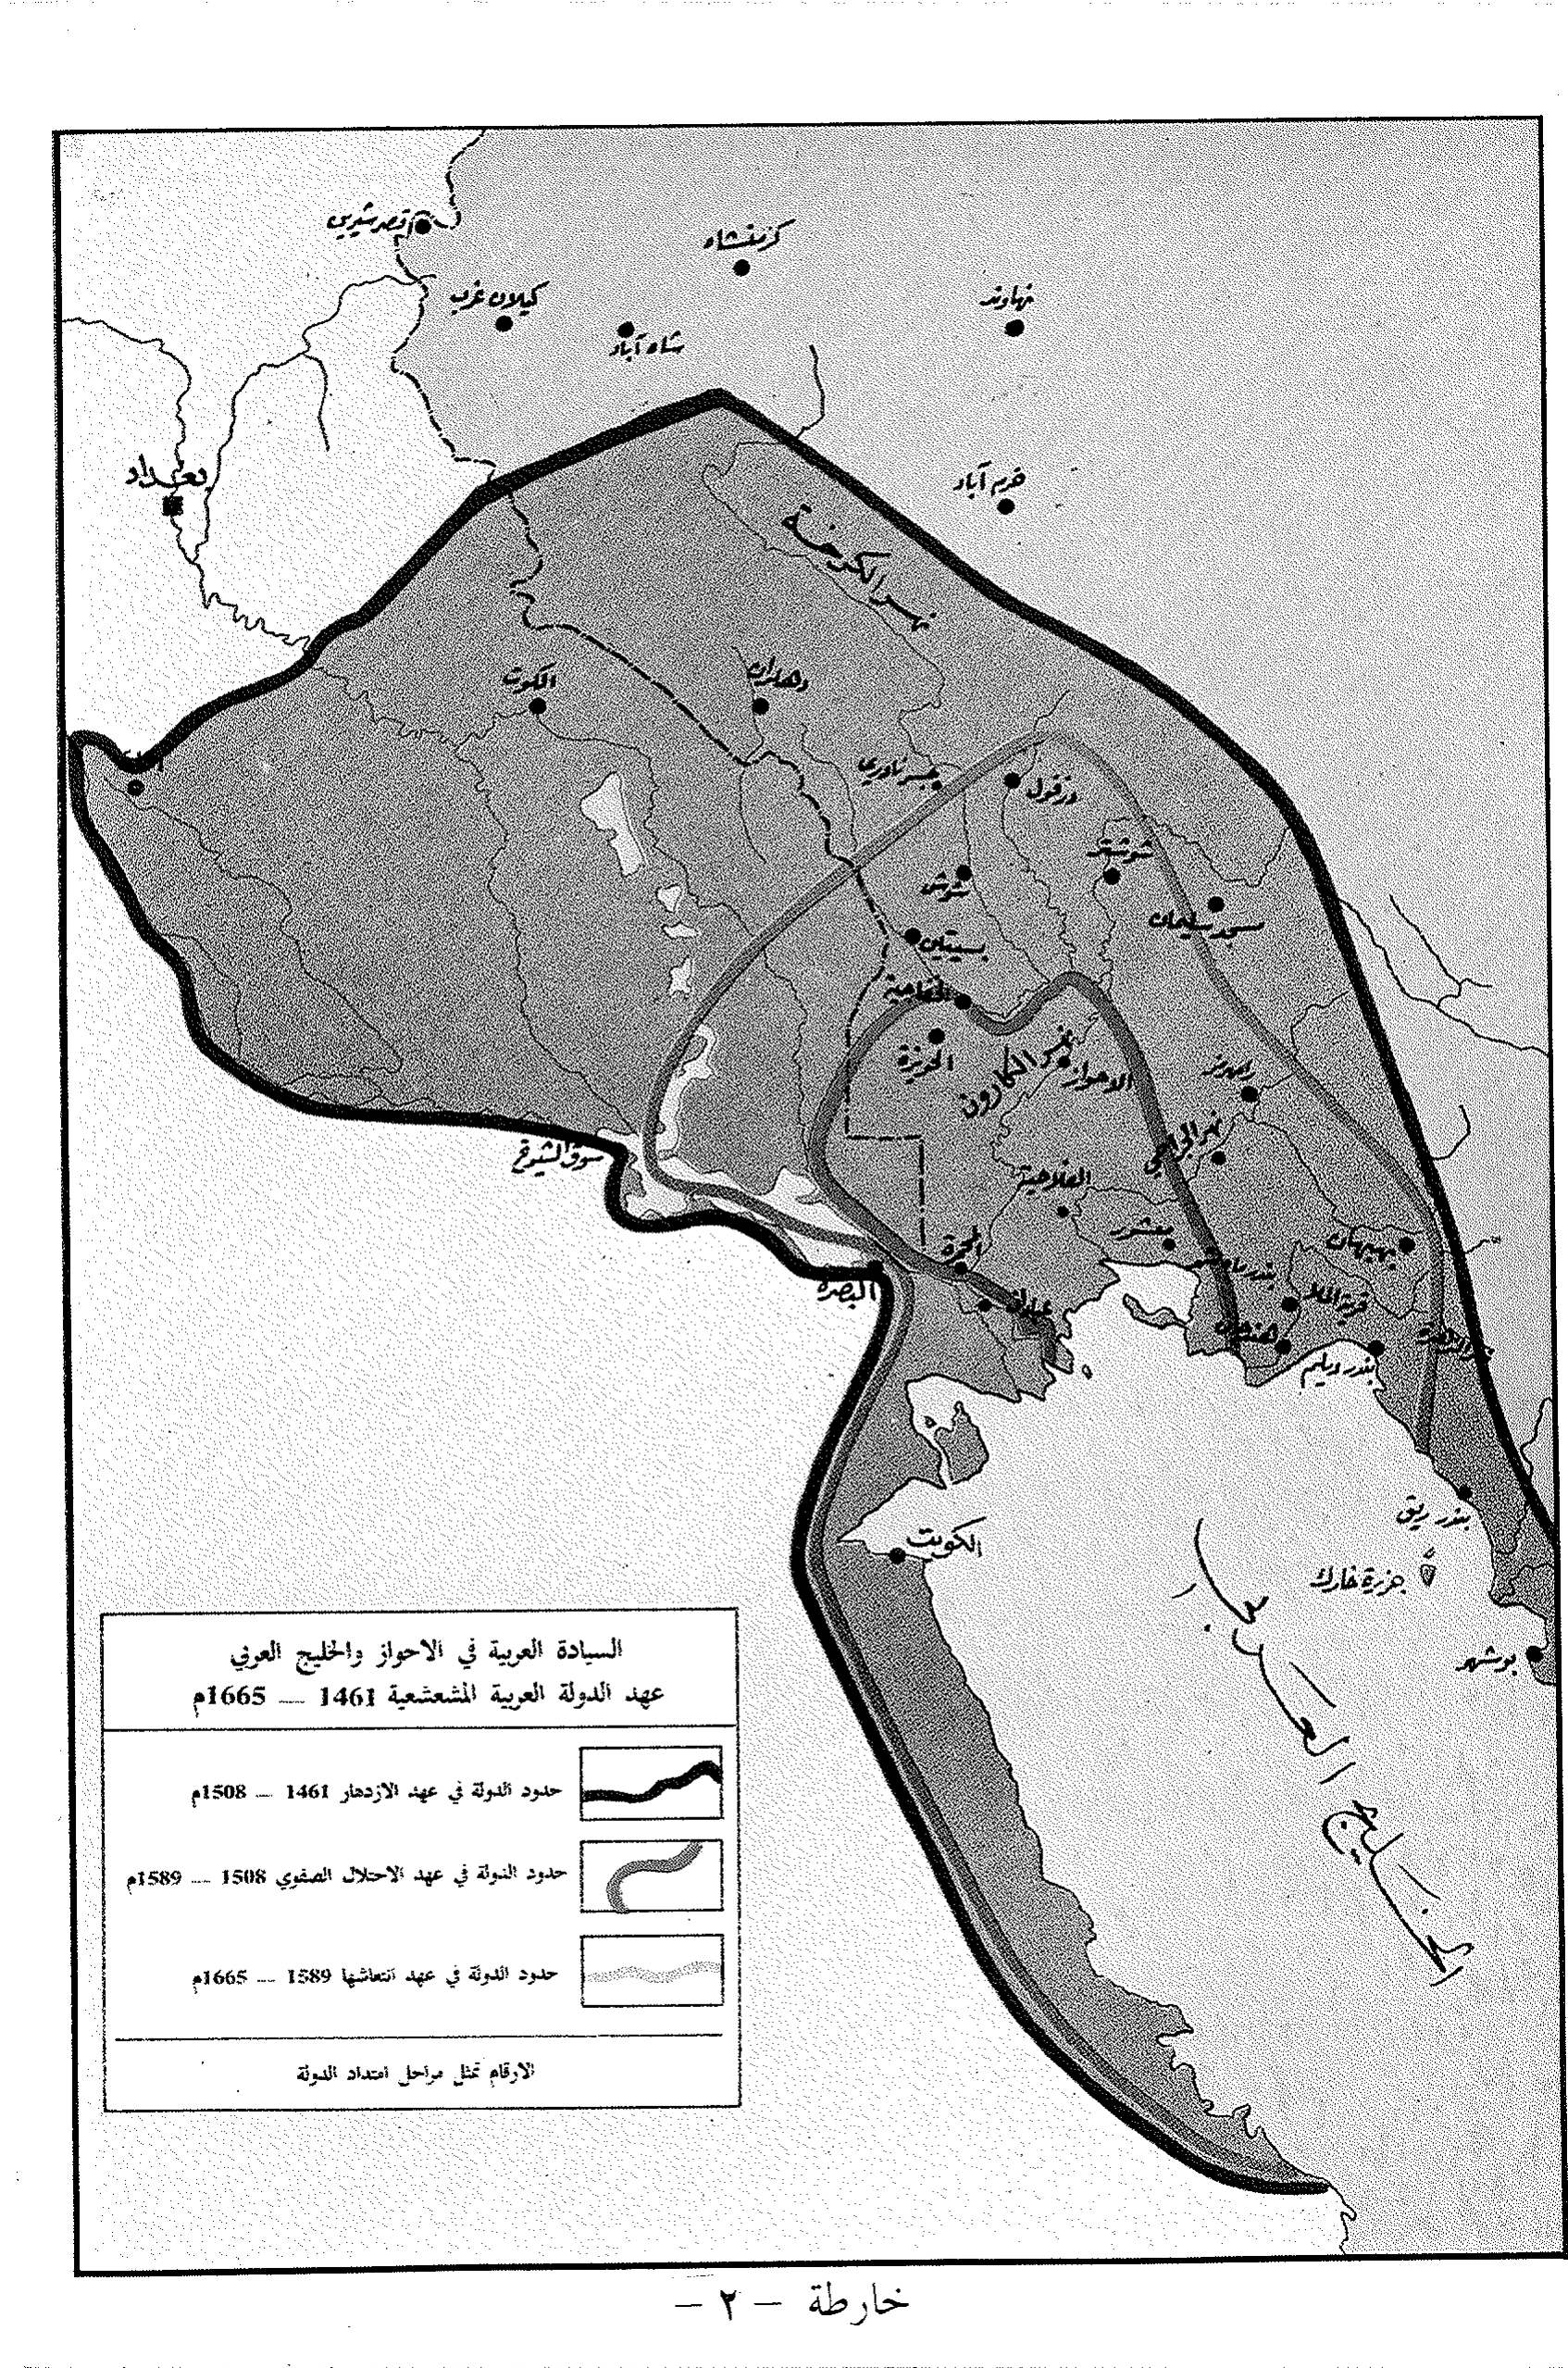 قصر شيرين
كرمنشاه
كيلان غرب
نهاوند
شاه آباد
بغداد
خرم آباد
نهر الكرخة
الكوت
دهلران
جسر نادري
دزفول
شوشتر
شوش
مسجد سليمان
بسيتين
الخفاجية
الحويزة
نهر الكارون
الاحواز
رامهرمز
نهر الجراحي
سوق الشيوخ
الفلاحية
معشور
بهبهان
المحمرة
البصرة
عبادان
هنديجان
بندر ديلم
بندر ريق
الكويت
جزيرة خارك
بوشهر
الخليج العربي
السيادة العربية في الاحواز والخليج العربي
عهد الدولة العربية المشعشعية 1461 — 1665م
حدود الدولة في عهد الازدهار 1461 — 1508م
حدود الدولة في عهد الاحتلال الصفوي 1508 — 1589م
حدود الدولة في عهد انتعاشها 1589 — 1665م
الارقام تمثل مراحل امتداد الدولة
خارطة — ٢ —